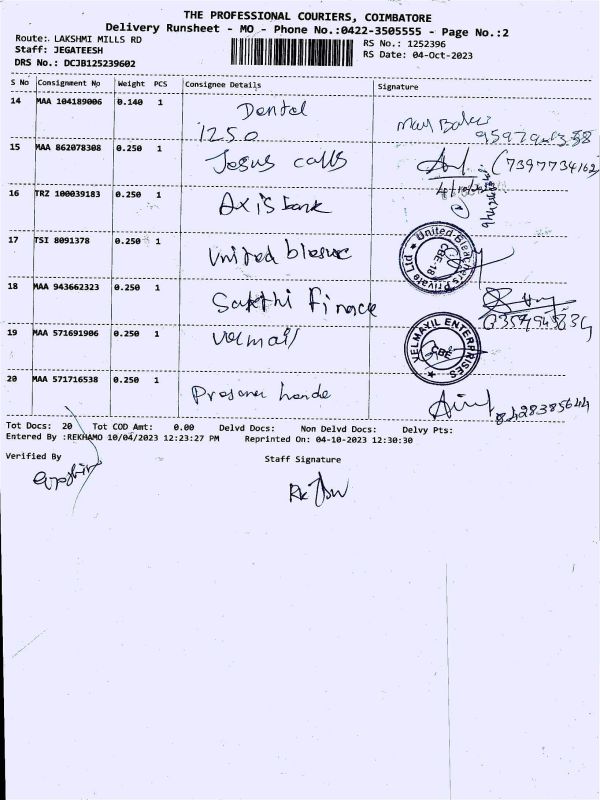 THE PROFESSIONAL COURIERS, COIMBATORE
Delivery Runsheet - MO - Phone No.:0422-3505555 - Page No.:2
Route: LAKSHMI MILLS RD
RS No.: 1252396
Staff: JEGATEESH
RS Date: 04-Oct-2023
DRS No.: DCJB125239602
S No Consignment No Weight PCS Consignee Details Signature
14 MAA 104189006 0.140 1 Dental
1250
15 MAA 862078308 0.250 1 Jesus calls (7397734162
16 TRZ 100039183 0.250 1 Axis bank
17 TSI 8091378 0.250 1 United United Bleachers Private Ltd CBE-18
18 MAA 943662323 0.250 1 Sakthi Finace
19 MAA 571691906 0.250 1 velmail VELMAYIL ENTERPRISES CBE
20 MAA 571716538 0.250 1 8428385644
Tot Docs: 20 Tot COD Amt: 0.00 Delvd Docs: Non Delvd Docs: Delvy Pts:
Entered By :REKHAMO 10/04/2023 12:23:27 PM Reprinted On: 04-10-2023 12:30:30
Verified By Staff Signature